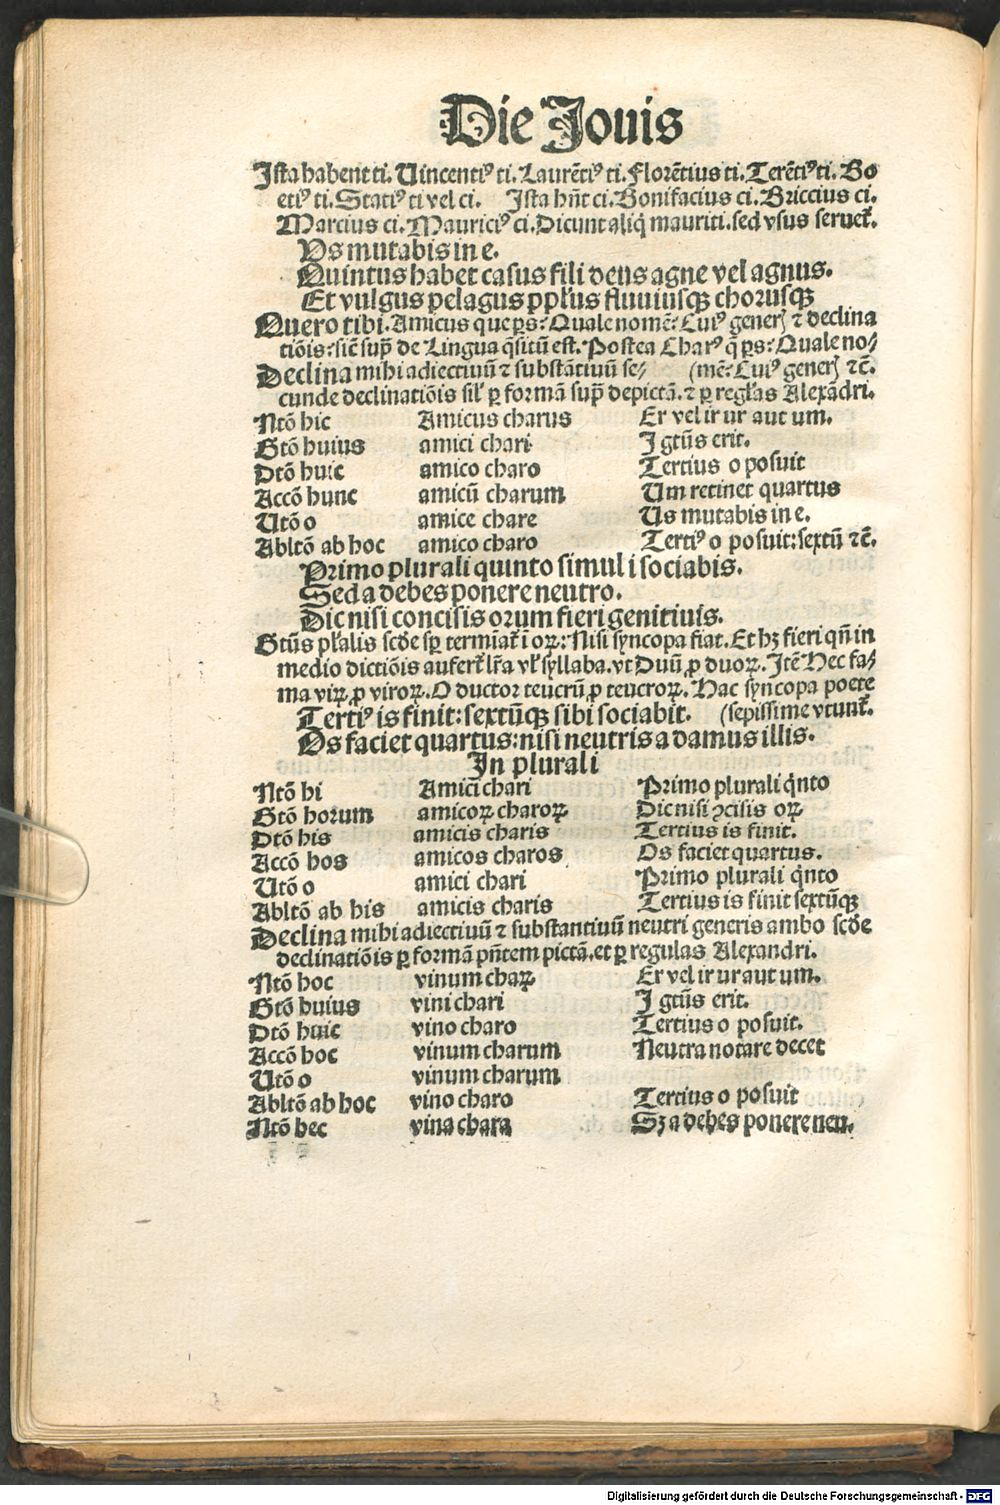 Die Jouis
Ista habent ti. Uincentiꝰ ti. Laurẽtiꝰ ti. Florẽtius ti. Terẽtiꝰ ti. Bo
etiꝰ ti. Statiꝰ ti vel ci. Ista hñt ci. Bonifacius ci. Briccius ci.
Marcius ci. Mauriciꝰ ci. Dicunt aliq̃ mauriti. sed vsus seruet̃.
Us mutabis in e.
Quintus habet casus fili deus agne vel agnus.
Et vulgus pelagus ppl̃us fluuiusqꝫ chorusqꝫ
Quero tibi. Amicus que ꝑs: Quale nomẽ: Cuiꝰ generꝭ ⁊ declina
tiõis: sic̃ sup̃ de Lingua q̃sitũ est. Postea Charꝰ q̃ ꝑs: Quale no⸗
Declina mihi adiectiuũ ⁊ substãtiuũ se⸗ (mẽ: Cuiꝰ generꝭ ⁊c̃.
cunde declinatiõis sil̃ ꝑ formã sup̃ depictã. ⁊ ꝑ regl̃as Alexãdri.
Ntõ hic Amicus charus Er vel ir ur aut um.
Gtõ huius amici chari I gtũs erit.
Dtõ huic amico charo Tertius o posuit
Accõ hunc amicũ charum Um retinet quartus
Utõ o amice chare Us mutabis in e.
Abltõ ab hoc amico charo Tertiꝰ o posuit: sextũ ⁊c̃.
Primo plurali quinto simul i sociabis.
Sed a debes ponere neutro.
Dic nisi concisis orum fieri genitiuis.
Gtũs pl̃alis scd̃e sp̃ termĩat̃ ĩ oꝝ: Nisi syncopa fiat. Et hꝫ fieri qñ in
medio dictiõis aufert̃ lr̃a vl̃ syllaba. vt Duũ ꝓ duoꝝ. Itẽ Hec fa⸗
ma viꝝ ꝓ viroꝝ. O ductor teucrũ ꝓ teucroꝝ. Hac syncopa poete
Tertiꝰ is finit: sextũqꝫ sibi sociabit. (sepissime vtunt̃.
Os faciet quartus: nisi neutris a damus illis.
In plurali
Ntõ hi Amici chari Primo plurali q̃nto
Gtõ horum amicoꝝ charoꝝ Dic nisi ꝯcisis oꝝ
Dtõ his amicis charis Tertius is finit.
Accõ hos amicos charos Os faciet quartus.
Utõ o amici chari Primo plurali q̃nto
Abltõ ab his amicis charis Tertius is finit sextũqꝫ
Declina mihi adiectiuũ ⁊ substantiuũ neutri generis ambo scd̃e
declinatiõis ꝑ formã pñtem pictã. et ꝑ regulas Alexandri.
Ntõ hoc vinum chaꝝ Er vel ir ur aut um.
Gtõ huius vini chari I gtũs erit.
Dtõ huic vino charo Tertius o posuit.
Accõ hoc vinum charum Neutra notare decet
Utõ o vinum charum
Abltõ ab hoc vino charo Tertius o posuit
Ntõ hec vina chara Sꝫ a debes ponere neu.
Digitalisierung gefördert durch die Deutsche Forschungsgemeinschaft - DFG